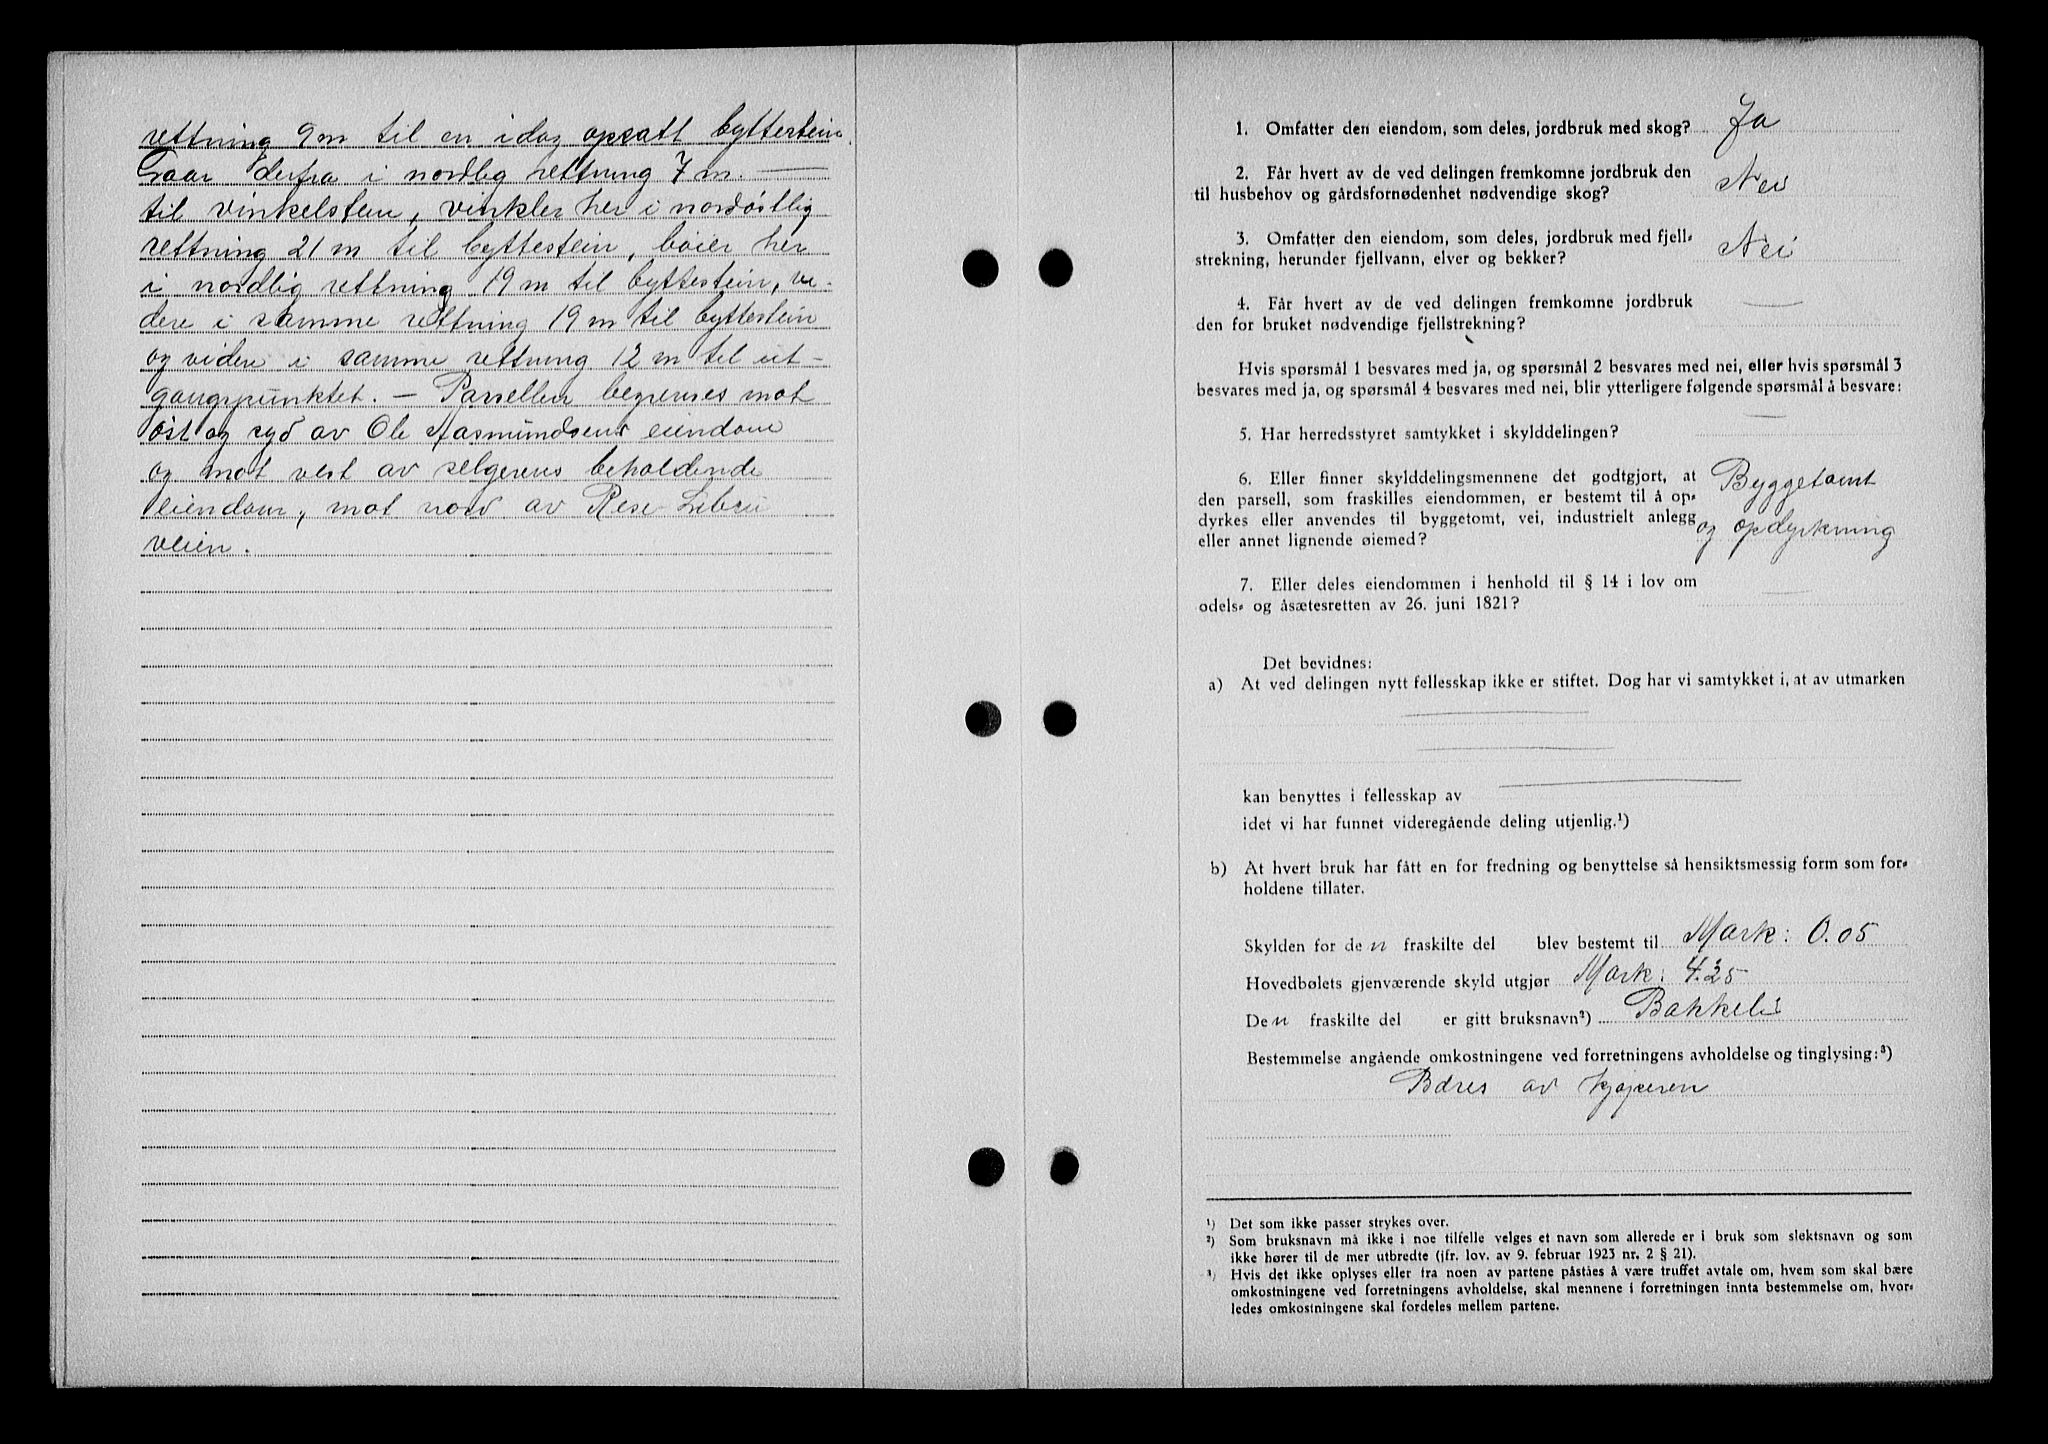 rettning 9 m til en idag opsatt byttestein.
Gaar derfra i nordlig rettning 7 m. —
til vinkelstein, vinkler her i nordøstlig
rettning 21 m til byttestein, bøier her
i nordlig rettning 19 m til byttestein, vi-
dere i samme rettning 19 m til byttestein
og videre i samme rettning 12 m til ut-
gangspunktet. — Parsellen begrenses mot
øst og syd av Ole Aasmundsens eiendom
og mot vest av selgerens beholdende
eiendom, mot nord av
veien.
1. Omfatter den eiendom, som deles, jordbruk med skog? Ja
2. Får hvert av de ved delingen fremkomne jordbruk den
til husbehov og gårdsfornødenhet nødvendige skog? Nei
3. Omfatter den eiendom, som deles, jordbruk med fjell-
strekning, herunder fjellvann, elver og bekker? Nei
4. Får hvert av de ved delingen fremkomne jordbruk
den for bruket nødvendige fjellstrekning? —
Hvis spørsmål 1 besvares med ja, og spørsmål 2 besvares med nei, eller hvis spørsmål 3
besvares med ja, og spørsmål 4 besvares med nei, blir ytterligere følgende spørsmål å besvare:
5. Har herredsstyret samtykket i skylddelingen? —
6. Eller finner skylddelingsmennene det godtgjort, at Byggetomt
den parsell, som fraskilles eiendommen, er bestemt til å op-
dyrkes eller anvendes til byggetomt, vei, industrielt anlegg og opdyrkning
eller annet lignende øiemed?
7. Eller deles eiendommen i henhold til § 14 i lov om
odels- og åsætesretten av 26. juni 1821? —
Det bevidnes:
a) At ved delingen nytt fellesskap ikke er stiftet. Dog har vi samtykket i, at av utmarken
kan benyttes i fellesskap av
idet vi har funnet videregående deling utjenlig.¹)
b) At hvert bruk har fått en for fredning og benyttelse så hensiktsmessig form som for-
holdene tillater.
Skylden for den fraskilte del blev bestemt til Mark: 0.05
Hovedbølets gjenværende skyld utgjør Mark: 4.25
Den fraskilte del er gitt bruksnavn²) Bakkeli
Bestemmelse angående omkostningene ved forretningens avholdelse og tinglysing:³)
Bæres av kjøperen
¹) Det som ikke passer strykes over.
²) Som bruksnavn må ikke i noe tilfelle velges et navn som allerede er i bruk som slektsnavn og som
ikke hører til de mer utbredte (jfr. lov. av 9. februar 1923 nr. 2 § 21).
³) Hvis det ikke oplyses eller fra noen av partene påståes å være truffet avtale om, hvem som skal bære
omkostningene ved forretningens avholdelse, skal mennene i forretningen innta bestemmelse om, hvor-
ledes omkostningene skal fordeles mellem partene.